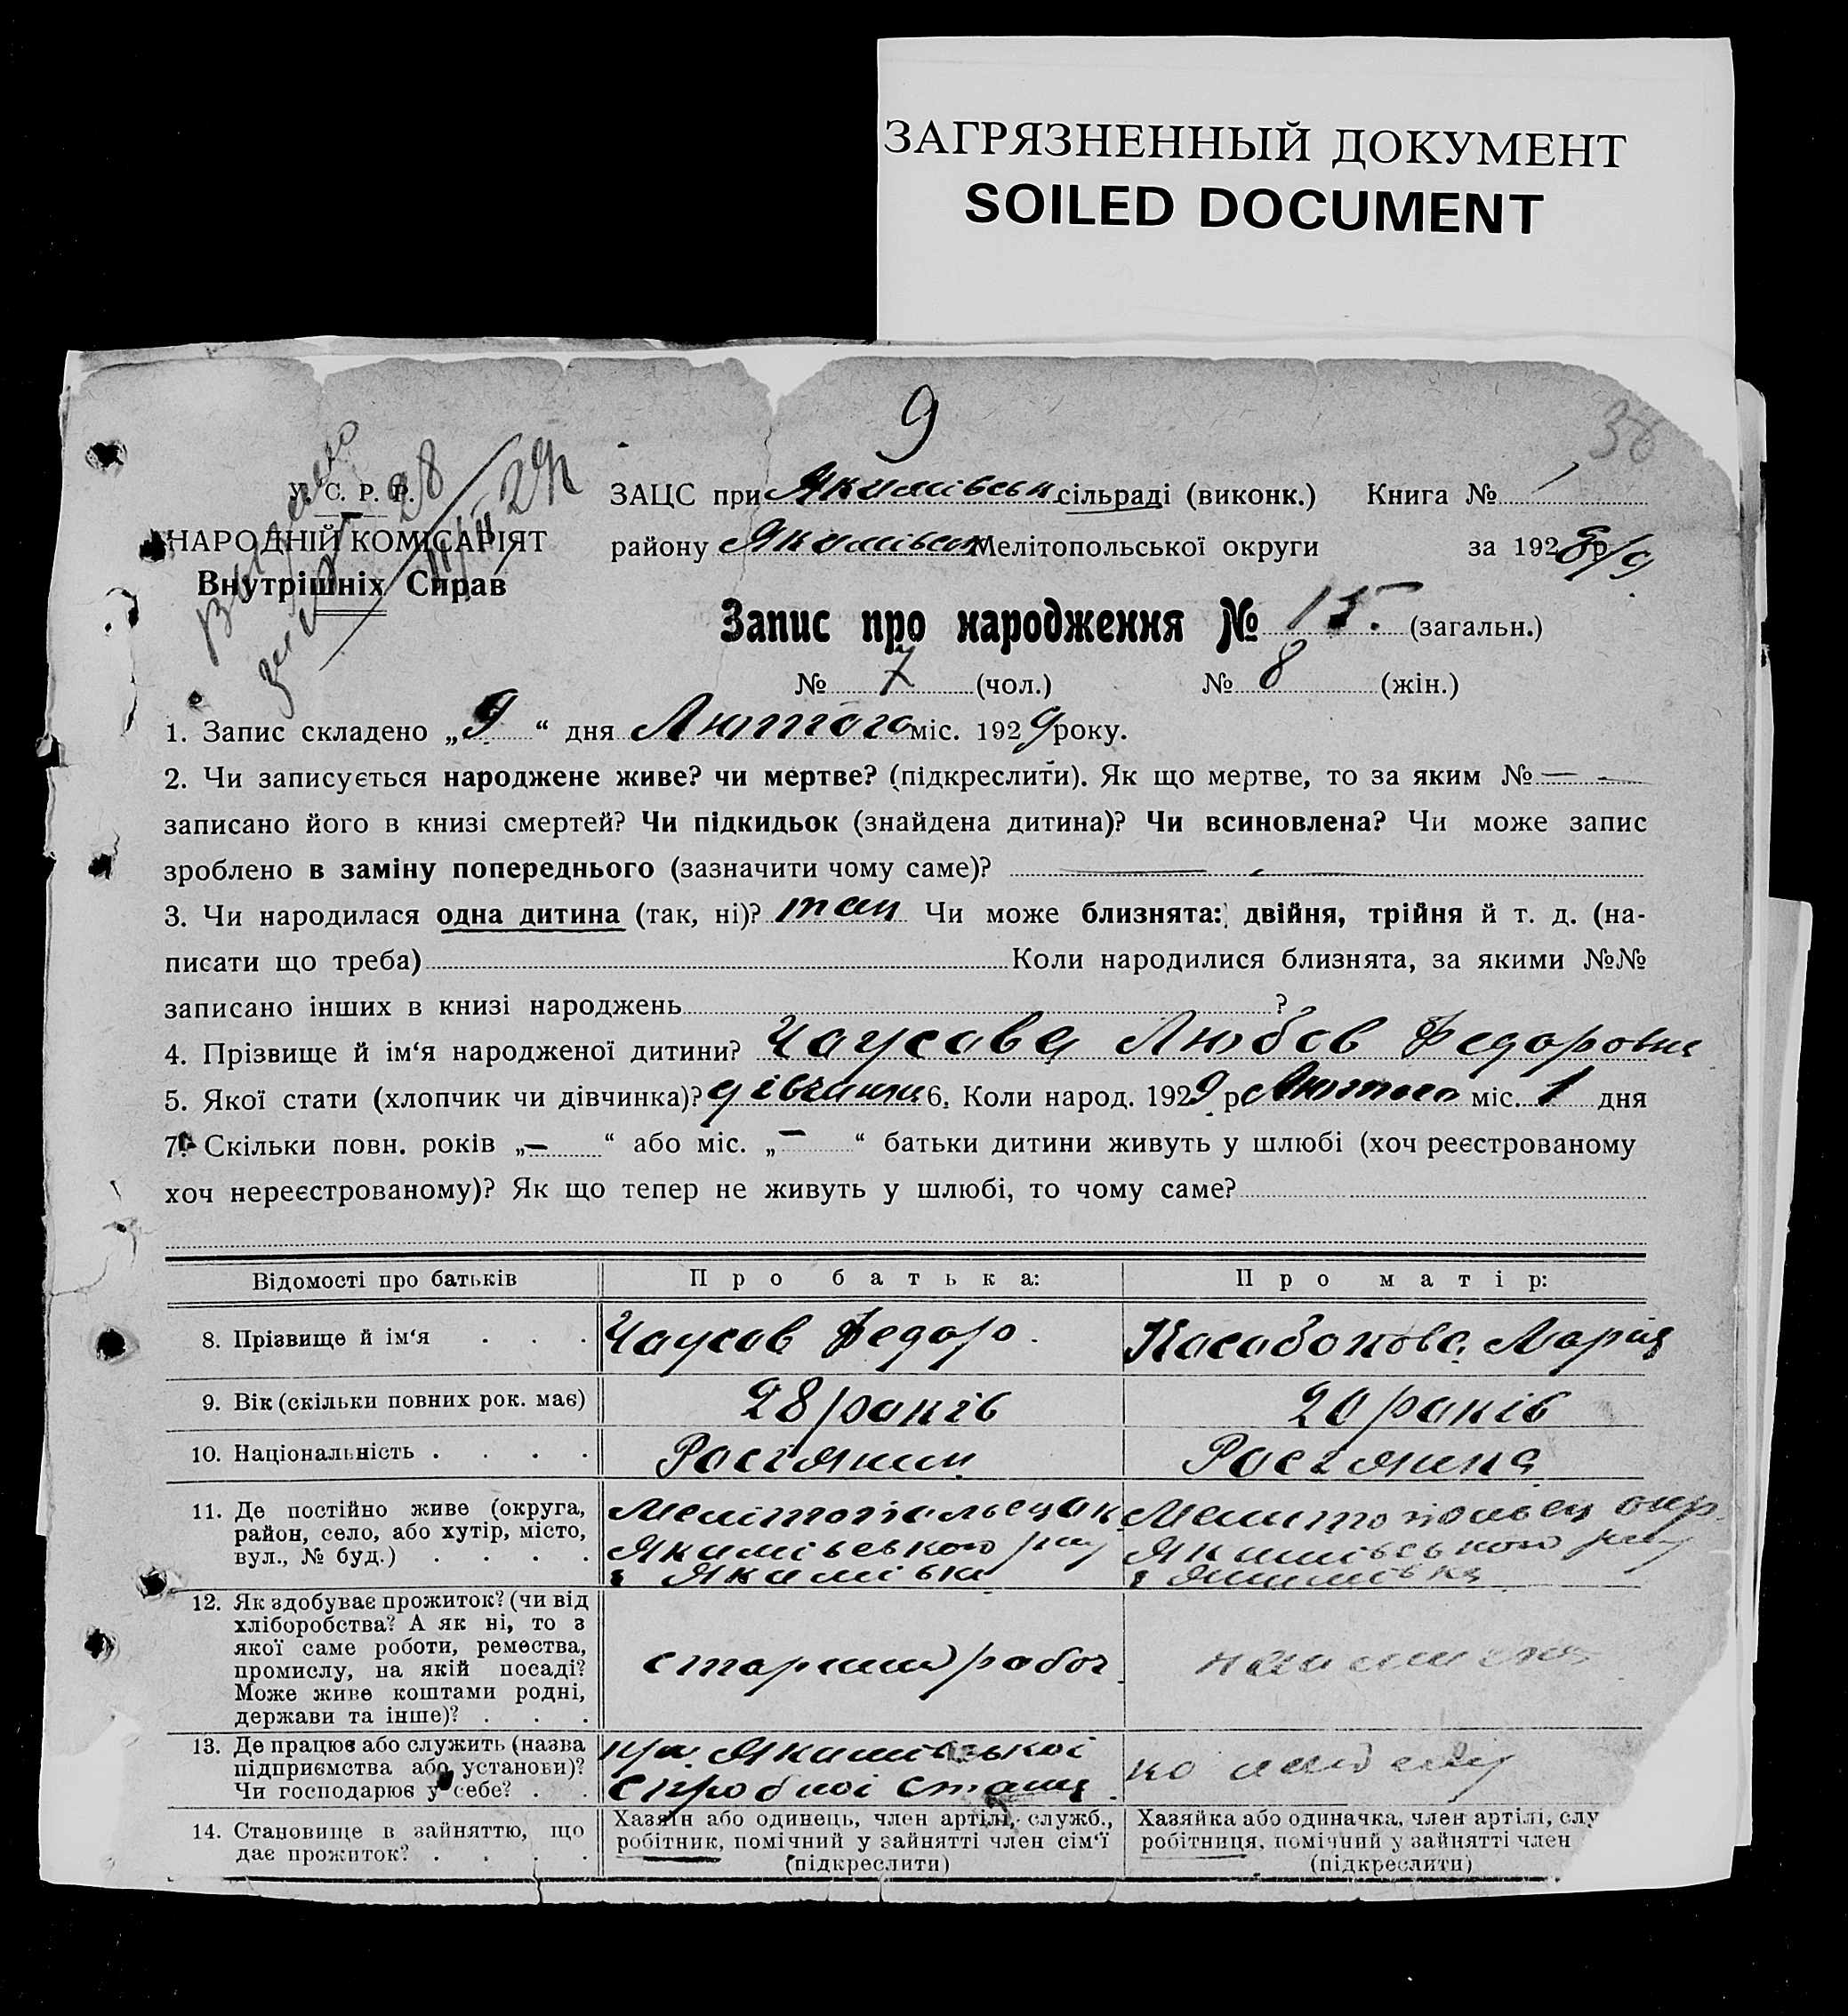 ЗАГРЯЗНЕННЫЙ ДОКУМЕНТ
SOILED DOCUMENT
9
38
У. С. Р. Р.
НАРОДНІЙ КОМІСАРІЯТ
Внутрішніх Справ
Видано
28
ЗАЦС при Якимівськ сільраді (виконк.) Книга № 1
району Якимівськ Мелітопольської округи за 1928/9 р.
Запис про народження № 15. (загальн.)
№ 7 (чол.) № 8 (жін.)
1. Запис складено „9“ дня Лютого міс. 1929 року.
2. Чи записується народжене живе? чи мертве? (підкреслити). Як що мертве, то за яким № —
записано його в книзі смертей? Чи підкидьок (знайдена дитина)? Чи всиновлена? Чи може запис
зроблено в заміну попереднього (зазначити чому саме)? —
3. Чи народилася одна дитина (так, ні)? так Чи може близнята: двійня, трійня й т. д. (на-
писати що треба) Коли народилися близнята, за якими №№
записано інших в книзі народжень ?
4. Прізвище й ім‘я народженої дитини? Чаусова Любов Федоровна
5. Якої стати (хлопчик чи дівчинка)? дівчинка 6. Коли народ. 1929 р. Лютого міс. 1 дня
7. Скільки повн. років „—“ або міс. „—“ батьки дитини живуть у шлюбі (хоч реєстрованому
хоч нереєстрованому)? Як що тепер не живуть у шлюбі, то чому саме?
Відомості про батьків Про батька: Про матір:
8. Прізвище й ім‘я Чаусов Федор. Касабокова Марія
9. Вік (скільки повних рок. має) 28 років 20 років
10. Національність Росіянин Росіянка
11. Де постійно живе (округа,
район, село, або хутір, місто,
вул., № буд.)
Мелітопольск ок
Якимівського рну
с Якимівка
Мелитопольск окр.
Якимівського рну
с Якимівка
12. Як здобуває прожиток? (чи від
хліборобства? А як ні, то з
якої саме роботи, ремества,
промислу, на якій посаді?
Може живе коштами родні,
держави та інше)?
старший робоч.
13. Де працює або служить (назва
підприємства або установи)?
Чи господарює у себе?
при Якимівської
спробної станц.
14. Становище в зайняттю, що
дає прожиток?
Хазяїн або одинець, член артілі, служб.,
робітник, помічний у зайнятті член сім‘ї
(підкреслити)
Хазяйка або одиначка, член артілі, слу
робітниця, помічний у зайнятті член
(підкреслити)